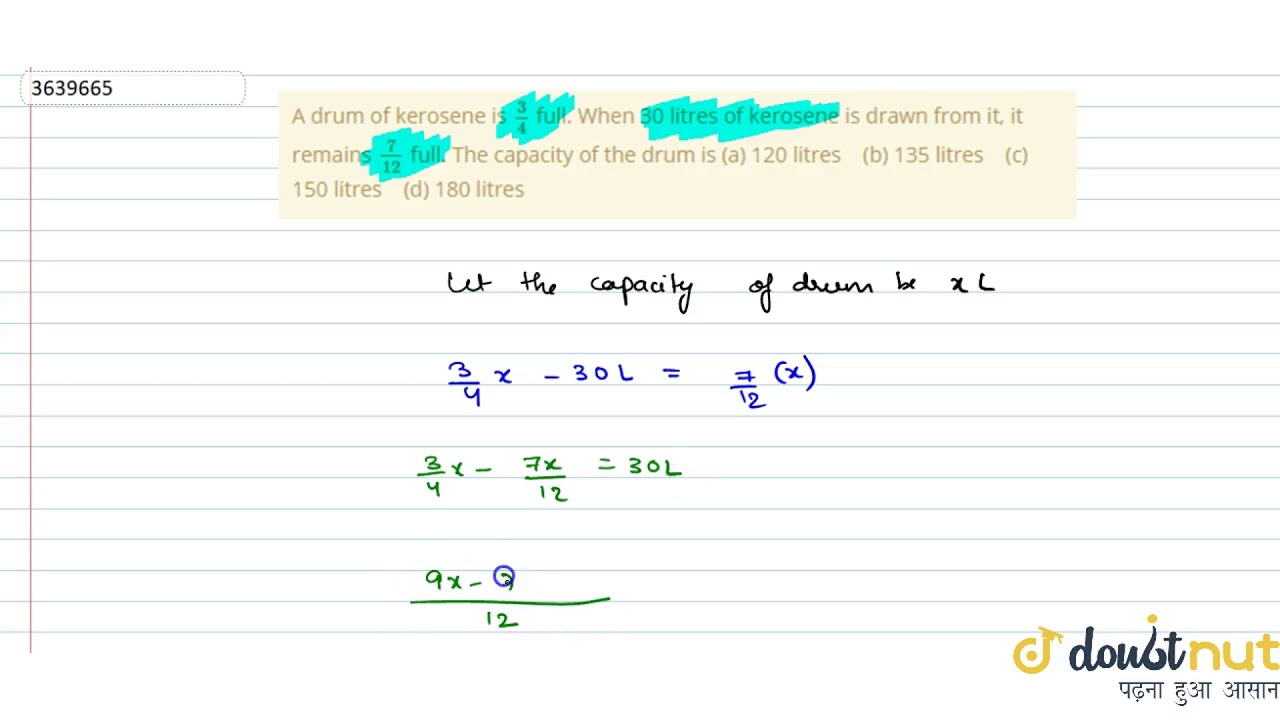 3639665
A drum of kerosene is 3/4 full. When 30 litres of kerosene is drawn from it, it
remains 7/12 full. The capacity of the drum is (a) 120 litres (b) 135 litres (c)
150 litres (d) 180 litres
Let the capacity of drum be x L
3/4 x - 30L = 7/12 (x)
3/4 x - 7x/12 = 30L
9x - 
12
doubtnut
पढ़ना हुआ आसान